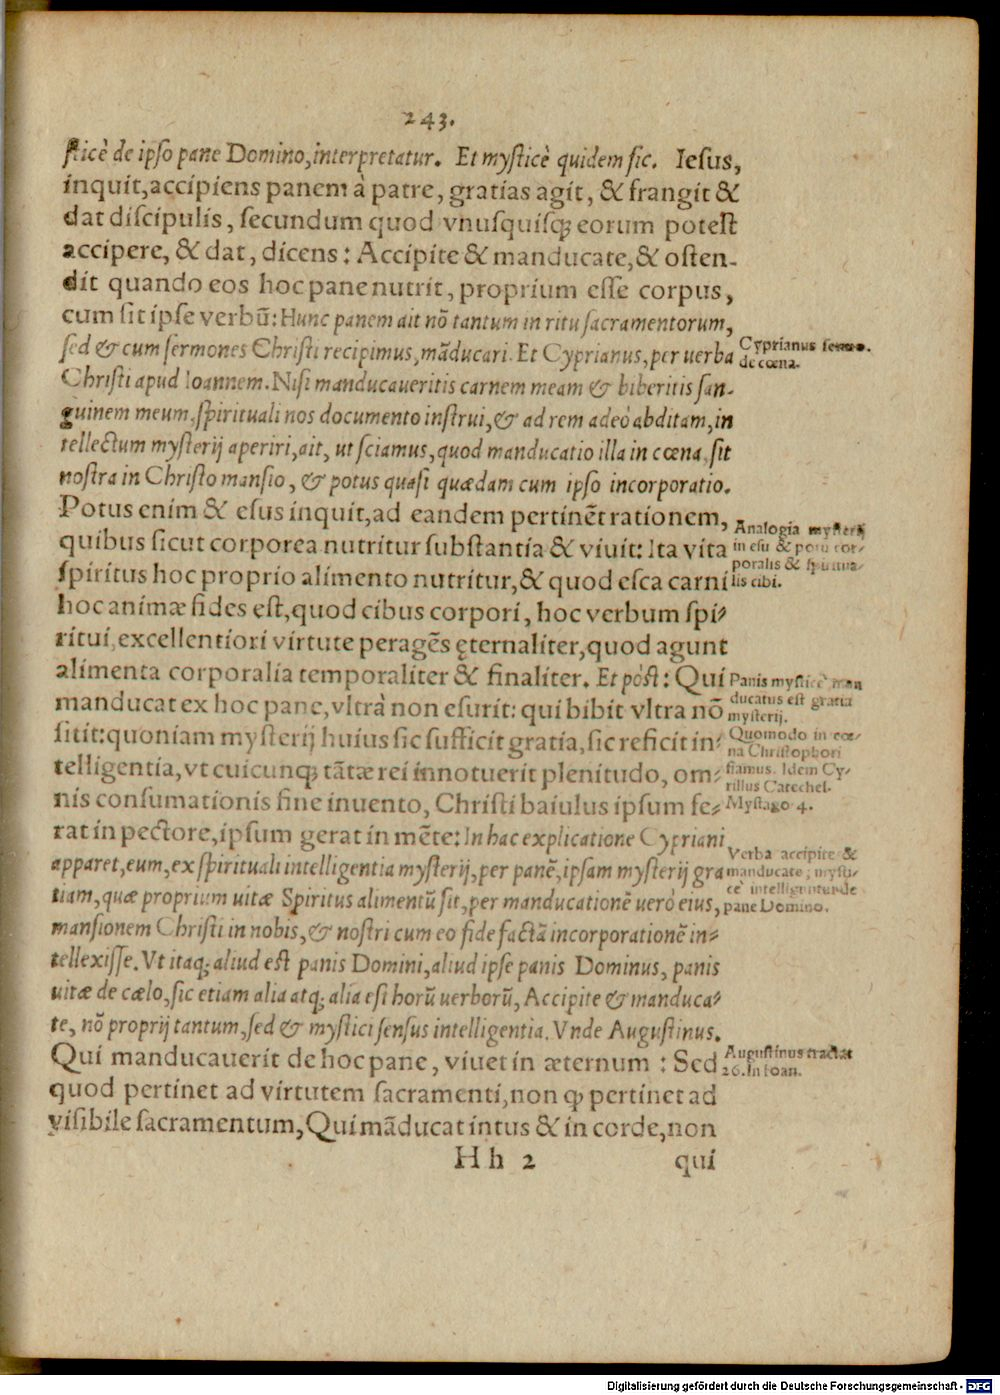 243.
sticè de ipso pane Domino, interpretatur. Et mysticè quidem sic. Iesus,
inquit, accipiens panem à patre, gratias agit, & frangit &
dat discipulis, secundum quod vnusquisqꝫ eorum potest
accipere, & dat, dicens: Accipite & manducate, & osten-
dit quando eos hoc pane nutrit, proprium esse corpus,
cum sit ipse verbū: Hunc panem ait nō tantum in ritu sacramentorum,
sed & cum sermones Christi recipimus, māducari. Et Cyprianus, per uerba
Christi apud Ioannem. Nisi manducaueritis carnem meam & biberitis san-
guinem meum, spirituali nos documento instrui, & ad rem adeò abditam, in
tellectum mysterij aperiri, ait, ut sciamus, quod manducatio illa in cœna, sit
nostra in Christo mansio, & potus quasi quædam cum ipso incorporatio.
Potus enim & esus inquit, ad eandem pertinēt rationem,
quibus sicut corporea nutritur substantia & viuit: Ita vita
spiritus hoc proprio alimento nutritur, & quod esca carni
hoc animæ fides est, quod cibus corpori, hoc verbum spi-
ritui, excellentiori virtute peragēs ęternaliter, quod agunt
alimenta corporalia temporaliter & finaliter. Et pòst: Qui
manducat ex hoc pane, vltrà non esurit: qui bibit vltra nō
sitit: quoniam mysterij huius sic sufficit gratia, sic reficit in-
telligentia, vt cuicunqꝫ tātæ rei innotuerit plenitudo, om-
nis consumationis fine inuento, Christi baiulus ipsum fe-
rat in pectore, ipsum gerat in mēte: In hac explicatione Cypriani
apparet, eum, ex spirituali intelligentia mysterij, per panē, ipsam mysterij gra
tiam, quæ proprium uitæ Spiritus alimentū sit, per manducationē uerò eius,
mansionem Christi in nobis, & nostri cum eo fide factā incorporationē in-
tellexisse. Vt itaqꝫ aliud est panis Domini, aliud ipse panis Dominus, panis
uitæ de cælo, sic etiam alia atqꝫ alia est horū uerborū, Accipite & manduca-
te, nō proprij tantum, sed & mystici sensus intelligentia. Vnde Augustinus.
Qui manducauerit de hoc pane, viuet in æternum : Sed
quod pertinet ad virtutem sacramenti, non ꝙ pertinet ad
visibile sacramentum, Qui māducat intus & in corde, non
H h 2
qui
Cyprianus
de cœna.
Analogia mysterij
in esu & potu cor-
poralis & spiritua-
lis cibi.
Panis mysticè man
ducatus est gratia
mysterij.
Quomodo in cœ-
na Christophori
fiamus. Idem Cy-
rillus Cateches.
Mystago 4.
Verba accipite &
manducate; mysti-
cè intelliguntur de
pane Domino.
Augustinus tractat
26. in Ioan.
Digitalisierung gefördert durch die Deutsche Forschungsgemeinschaft - DFG